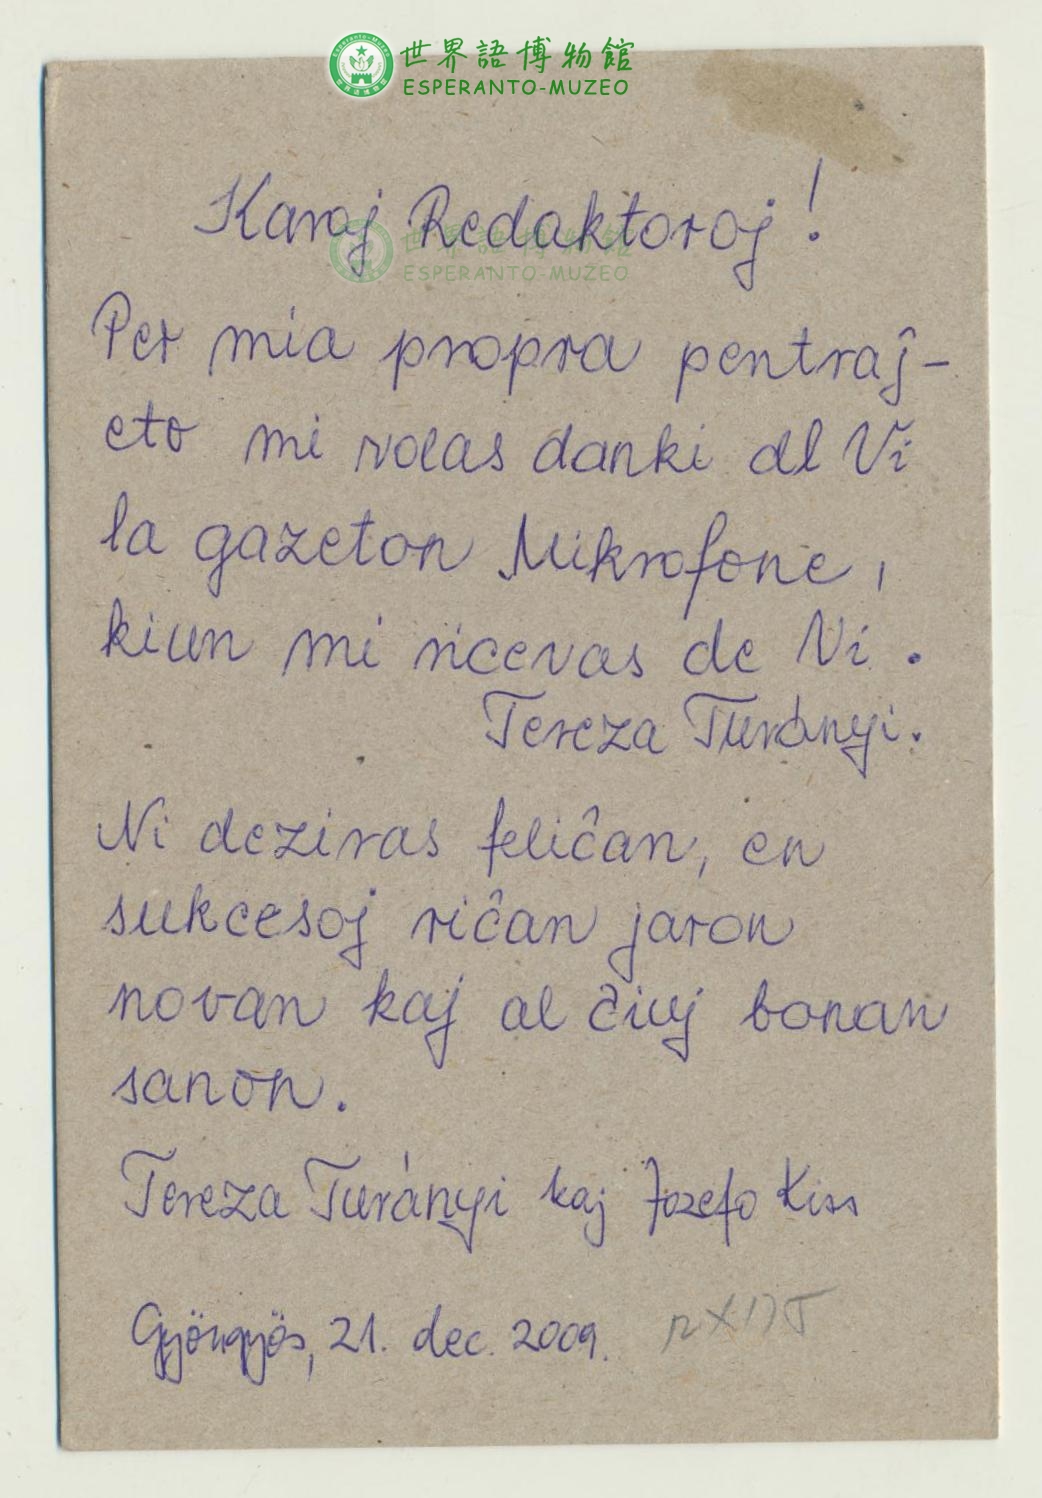 世界語博物館
ESPERANTO-MUZEO
Karaj Redaktoroj!
世界語博物館
ESPERANTO-MUZEO
Per mia propra pentraĵ-
eto mi volas danki al Vi
la gazeton Mikrofone,
kiun mi ricevas de Vi.
Tereza Turányi.
Ni deziras feliĉan, en
sukcesoj riĉan jaron
novan kaj al ĉiuj bonan
sanon.
Tereza Turányi kaj Jozefo Kiss
Gyöngyös, 21. dec. 2009.